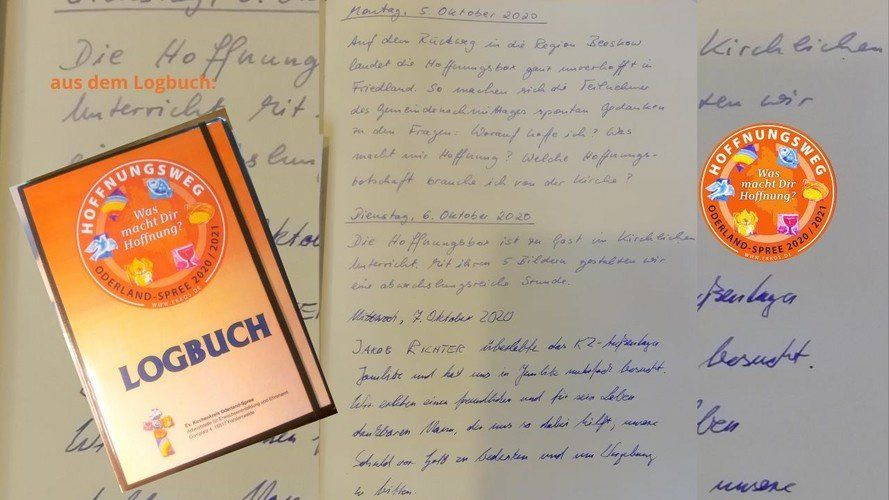 aus dem Logbuch:
Die Hoffnung
Unterricht. Mit
HOFFNUNGSWEG
Was
macht Dir
Hoffnung?
ODERLAND-SPREE 2020 / 2021
WWW.EKKOS.DE
LOGBUCH
Ev. Kirchenkreis Oderland-Spree
Arbeitsstelle für Erwachsenenbildung und Ehrenamt
Domstr. 15517 Fürstenwalde
Montag, 5. Oktober 2020
Auf dem Rückweg in die Region Beeskow
landet die Hoffnungsbox ganz unverhofft in
Friedland. So machen sich die Teilnehmer
des Gemeindenachmittages spontan Gedanken
zu den Fragen: Worauf hoffe ich? Was
macht mir Hoffnung? Welche Hoffnungs-
botschaft brauche ich von der Kirche?
Dienstag, 6. Oktober 2020
Die Hoffnungsbox ist zu Gast im Kirchlichen
Unterricht. Mit ihren 5 Bildern gestalten wir
eine abwechslungsreiche Stunde.
Mittwoch, 7. Oktober 2020
JAKOB RICHTER überlebte das KZ-Außenlager
Jamlitz und hat uns in Jamlitz mehrfach besucht.
Wir erlebten einen freundlichen und für sein Leben
dankbaren Mann, der uns so dabei hilft, unsere
Schuld vor Gott zu bedenken und um Vergebung
zu bitten.
Kirchlichen
ten wir
HOFFNUNGSWEG
Was
macht Dir
Hoffnung?
ODERLAND-SPREE 2020 / 2021
WWW.EKKOS.DE
ßenlager
besucht.
ben
unsere